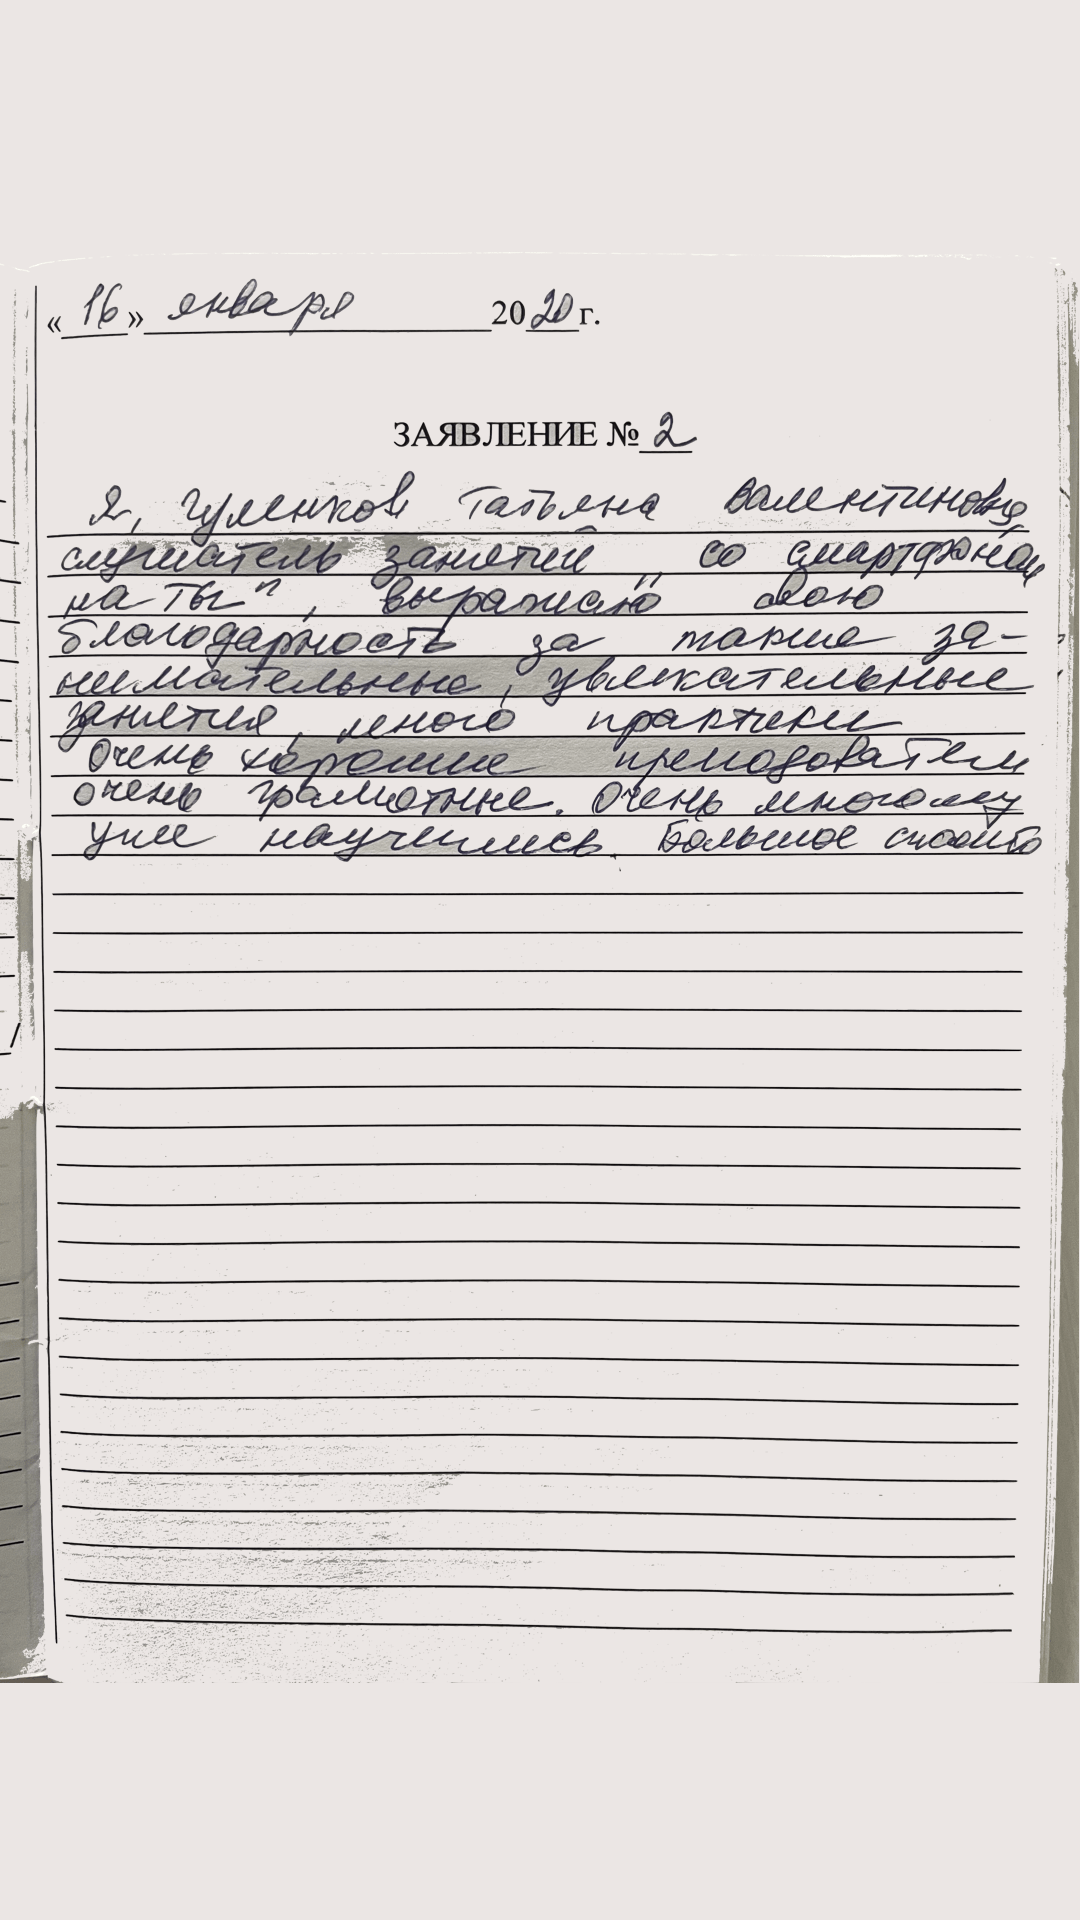 «16» января 2020 г.
ЗАЯВЛЕНИЕ № 2
Я, Гуленкова Татьяна Валентиновна,
слушатель занятий „ со смартфоном
на ты", выражаю свою
благодарность за такие за-
нимательные, увлекательные
занятия, много практики
Очень хорошие преподаватели
очень грамотные. Очень многому
уже научились. Большое спасибо